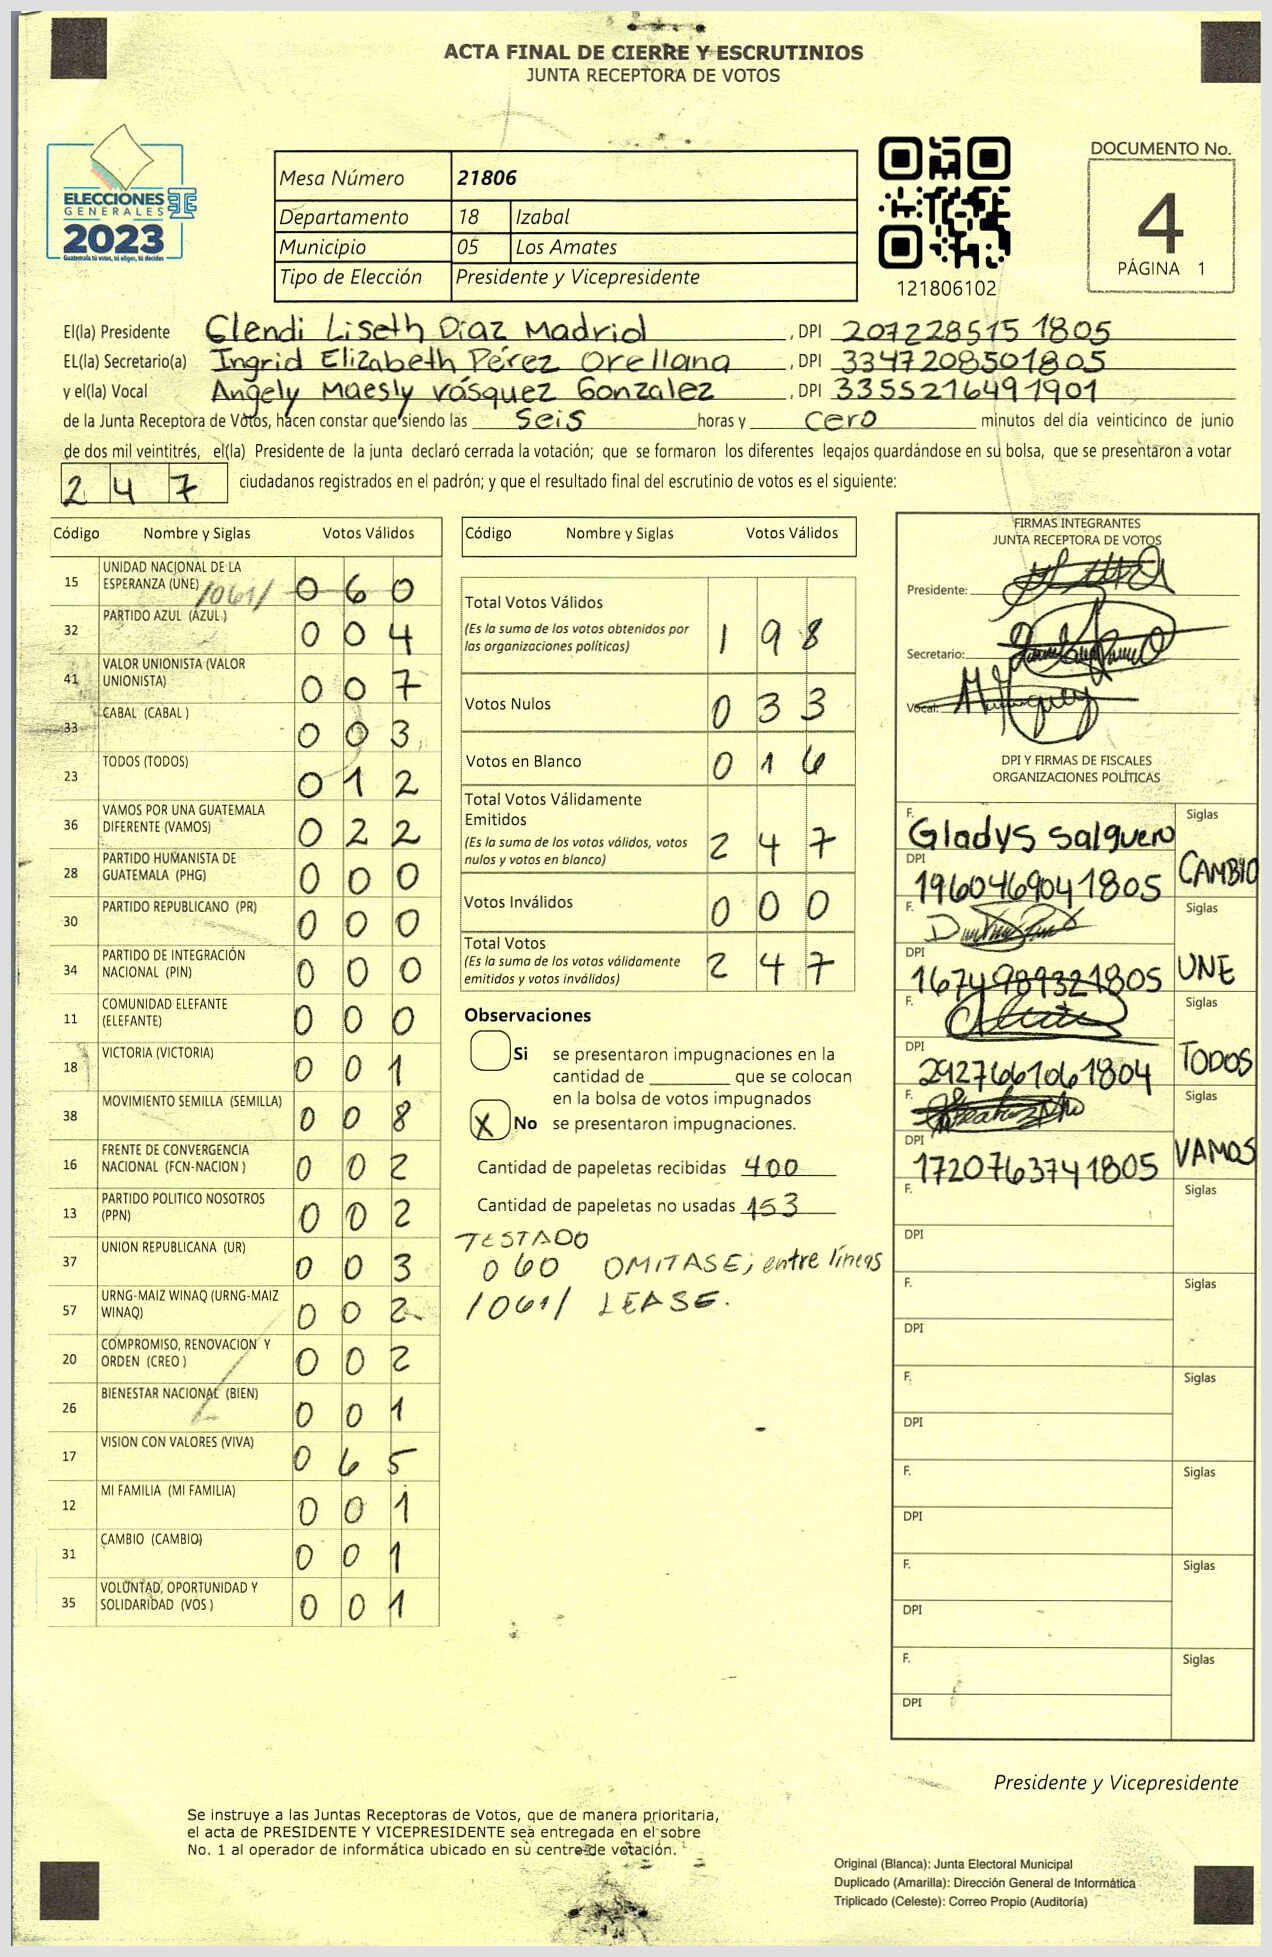 ACTA FINAL DE CIERRE Y ESCRUTINIOS
JUNTA RECEPTORA DE VOTOS
ELECCIONES
GENERALES
2023
Guatemala tú votas, tú eliges, tú decides
Mesa Número 21806
Departamento 18 Izabal
Municipio 05 Los Amates
Tipo de Elección Presidente y Vicepresidente
121806102
DOCUMENTO No.
4
PÁGINA 1
El(la) Presidente Glendi Liseth Díaz Madrid , DPI 207228515 1805
EL(la) Secretario(a) Ingrid Elizabeth Pérez Orellana , DPI 3347208501805
y el(la) Vocal Angely Maesly Vásquez Gonzalez , DPI 3355216491901
de la Junta Receptora de Votos, hacen constar que siendo las seis horas y cero minutos del día veinticinco de junio
de dos mil veintitrés, el(la) Presidente de la junta declaró cerrada la votación; que se formaron los diferentes legajos guardándose en su bolsa, que se presentaron a votar
2 4 7 ciudadanos registrados en el padrón; y que el resultado final del escrutinio de votos es el siguiente:
Código Nombre y Siglas Votos Válidos
15 UNIDAD NACIONAL DE LA ESPERANZA (UNE) /061/ 0 6 0
32 PARTIDO AZUL (AZUL ) 0 0 4
41 VALOR UNIONISTA (VALOR UNIONISTA) 0 0 7
33 CABAL (CABAL ) 0 0 3
23 TODOS (TODOS) 0 1 2
36 VAMOS POR UNA GUATEMALA DIFERENTE (VAMOS) 0 2 2
28 PARTIDO HUMANISTA DE GUATEMALA (PHG) 0 0 0
30 PARTIDO REPUBLICANO (PR) 0 0 0
34 PARTIDO DE INTEGRACIÓN NACIONAL (PIN) 0 0 0
11 COMUNIDAD ELEFANTE (ELEFANTE) 0 0 0
18 VICTORIA (VICTORIA) 0 0 1
38 MOVIMIENTO SEMILLA (SEMILLA) 0 0 8
16 FRENTE DE CONVERGENCIA NACIONAL (FCN-NACION ) 0 0 2
13 PARTIDO POLITICO NOSOTROS (PPN) 0 0 2
37 UNION REPUBLICANA (UR) 0 0 3
57 URNG-MAIZ WINAQ (URNG-MAIZ WINAQ) 0 0 2
20 COMPROMISO, RENOVACION Y ORDEN (CREO ) 0 0 2
26 BIENESTAR NACIONAL (BIEN) 0 0 1
17 VISION CON VALORES (VIVA) 0 6 5
12 MI FAMILIA (MI FAMILIA) 0 0 1
31 CAMBIO (CAMBIO) 0 0 1
35 VOLUNTAD, OPORTUNIDAD Y SOLIDARIDAD (VOS ) 0 0 1
Código Nombre y Siglas Votos Válidos
Total Votos Válidos
(Es la suma de los votos obtenidos por
las organizaciones políticas) 1 9 8
Votos Nulos 0 3 3
Votos en Blanco 0 1 6
Total Votos Válidamente
Emitidos
(Es la suma de los votos válidos, votos
nulos y votos en blanco) 2 4 7
Votos Inválidos 0 0 0
Total Votos
(Es la suma de los votos válidamente
emitidos y votos inválidos) 2 4 7
Observaciones
Si se presentaron impugnaciones en la
cantidad de ________ que se colocan
en la bolsa de votos impugnados
X No se presentaron impugnaciones.
Cantidad de papeletas recibidas 400
Cantidad de papeletas no usadas 153
TESTADO
060 OMITASE; entre líneas
/061/ LEASE.
FIRMAS INTEGRANTES
JUNTA RECEPTORA DE VOTOS
Presidente:
Secretario:
Vocal:
DPI Y FIRMAS DE FISCALES
ORGANIZACIONES POLÍTICAS
F. Gladys Salguero Siglas
DPI 1960469041805 CAMBIO
F. Siglas
DPI 1674989321805 UNE
F. Siglas
DPI 2927661061804 TODOS
F. Siglas
DPI 1720763741805 VAMOS
F. Siglas
DPI
F. Siglas
DPI
F. Siglas
DPI
F. Siglas
DPI
F. Siglas
DPI
F. Siglas
DPI
Presidente y Vicepresidente
Se instruye a las Juntas Receptoras de Votos, que de manera prioritaria,
el acta de PRESIDENTE Y VICEPRESIDENTE sea entregada en el sobre
No. 1 al operador de informática ubicado en su centro de votación.
Original (Blanca): Junta Electoral Municipal
Duplicado (Amarilla): Dirección General de Informática
Triplicado (Celeste): Correo Propio (Auditoría)